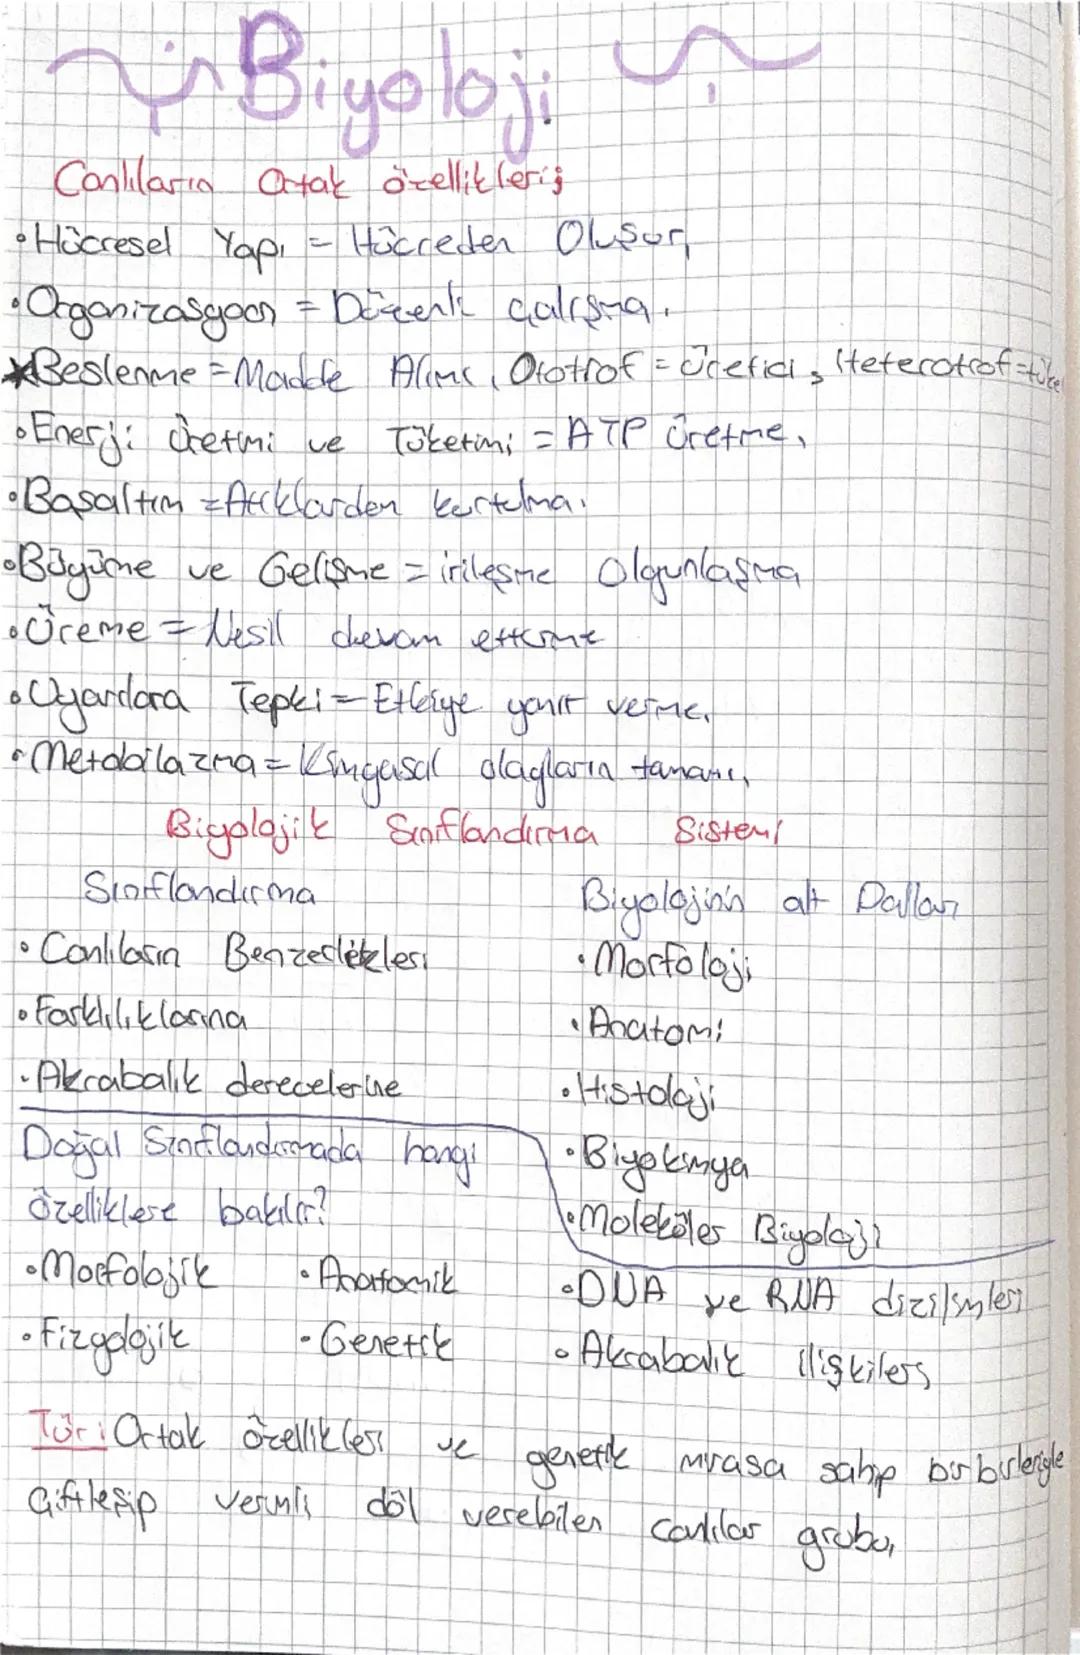 Biyoloji
Canlıların Ortak özellikleri;
• Hücresel Yapı = Hücreden Oluşur,
• Organizasyoon = Düzenli çalışma.
* Beslenme = Madde Alımı, Ototrof = üretici, Heterotrof = tüke
• Enerji üretimi ve Tüketimi = ATP üretme,
• Boşaltım = Atıklardan kurtulma.
• Büyüme ve Gelişme = irileşme Olgunlaşma
• Üreme = Nesil devam ettirme
• Uyarılara Tepki = Etkiye yanıt verme.
• Metobilazma = Kimyasal olayların tamamı,
Biyolojik Sınıflandırma Sistemi
Sınıflandırma
• Canlıların Benzerlikleri
• Farklılıklarına
• Akrabalık derecelerine
Biyolojinin alt Dalları
• Morfoloji
• Anatomi
• Histoloji
• Biyokimya
• Moleküler Biyoloji
Doğal Sınıflandırmada hangi
özelliklere bakılır?
• Morfolojik • Anatomik
• Fizyolojik • Genetik
• DNA ve RNA dizilimleri
• Akrabalık ilişkileri
Tür: Ortak özellikleri ve genetik mirasa sahip birbirleriyle
çiftleşip verimli döl verebilen canlılar grubu,